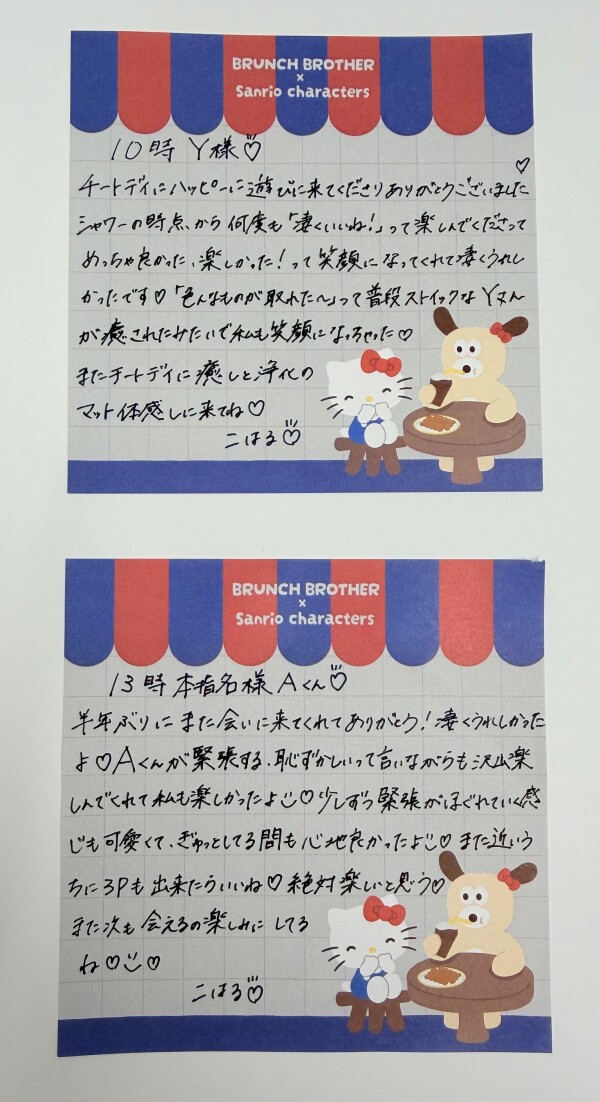 BRUNCH BROTHER
×
Sanrio characters
10時 Y様♡
チートデイにハッピーに遊びに来てくださりありがとうございました♡
シャワーの時点から何度も「凄くいいね!」って楽しんでくださって
めっちゃ良かった、楽しかった!って笑顔になってくれて凄くうれし
かったです♡「色んなものが取れた〜」って普段ストイックなYさん
が癒されたみたいで私も笑顔になっちゃった♡
またチートデイに癒しと浄化の
マット体感しに来てね♡
こはる♡
BRUNCH BROTHER
×
Sanrio characters
13時 本指名様 Aくん♡
半年ぶりにまた会いに来てくれてありがとう!凄くうれしかった
よ♡Aくんが緊張する、恥ずかしいって言いながらも沢山楽
しんでくれて私も楽しかったよ♡少しずつ緊張がほぐれていく感
じも可愛くて、ぎゅっとしてる間も心地良かったよ♡また近いう
ちに3Pも出来たらいいね♡絶対楽しいと思う♡
また次も会えるの楽しみにしてる
ね♡♡
こはる♡